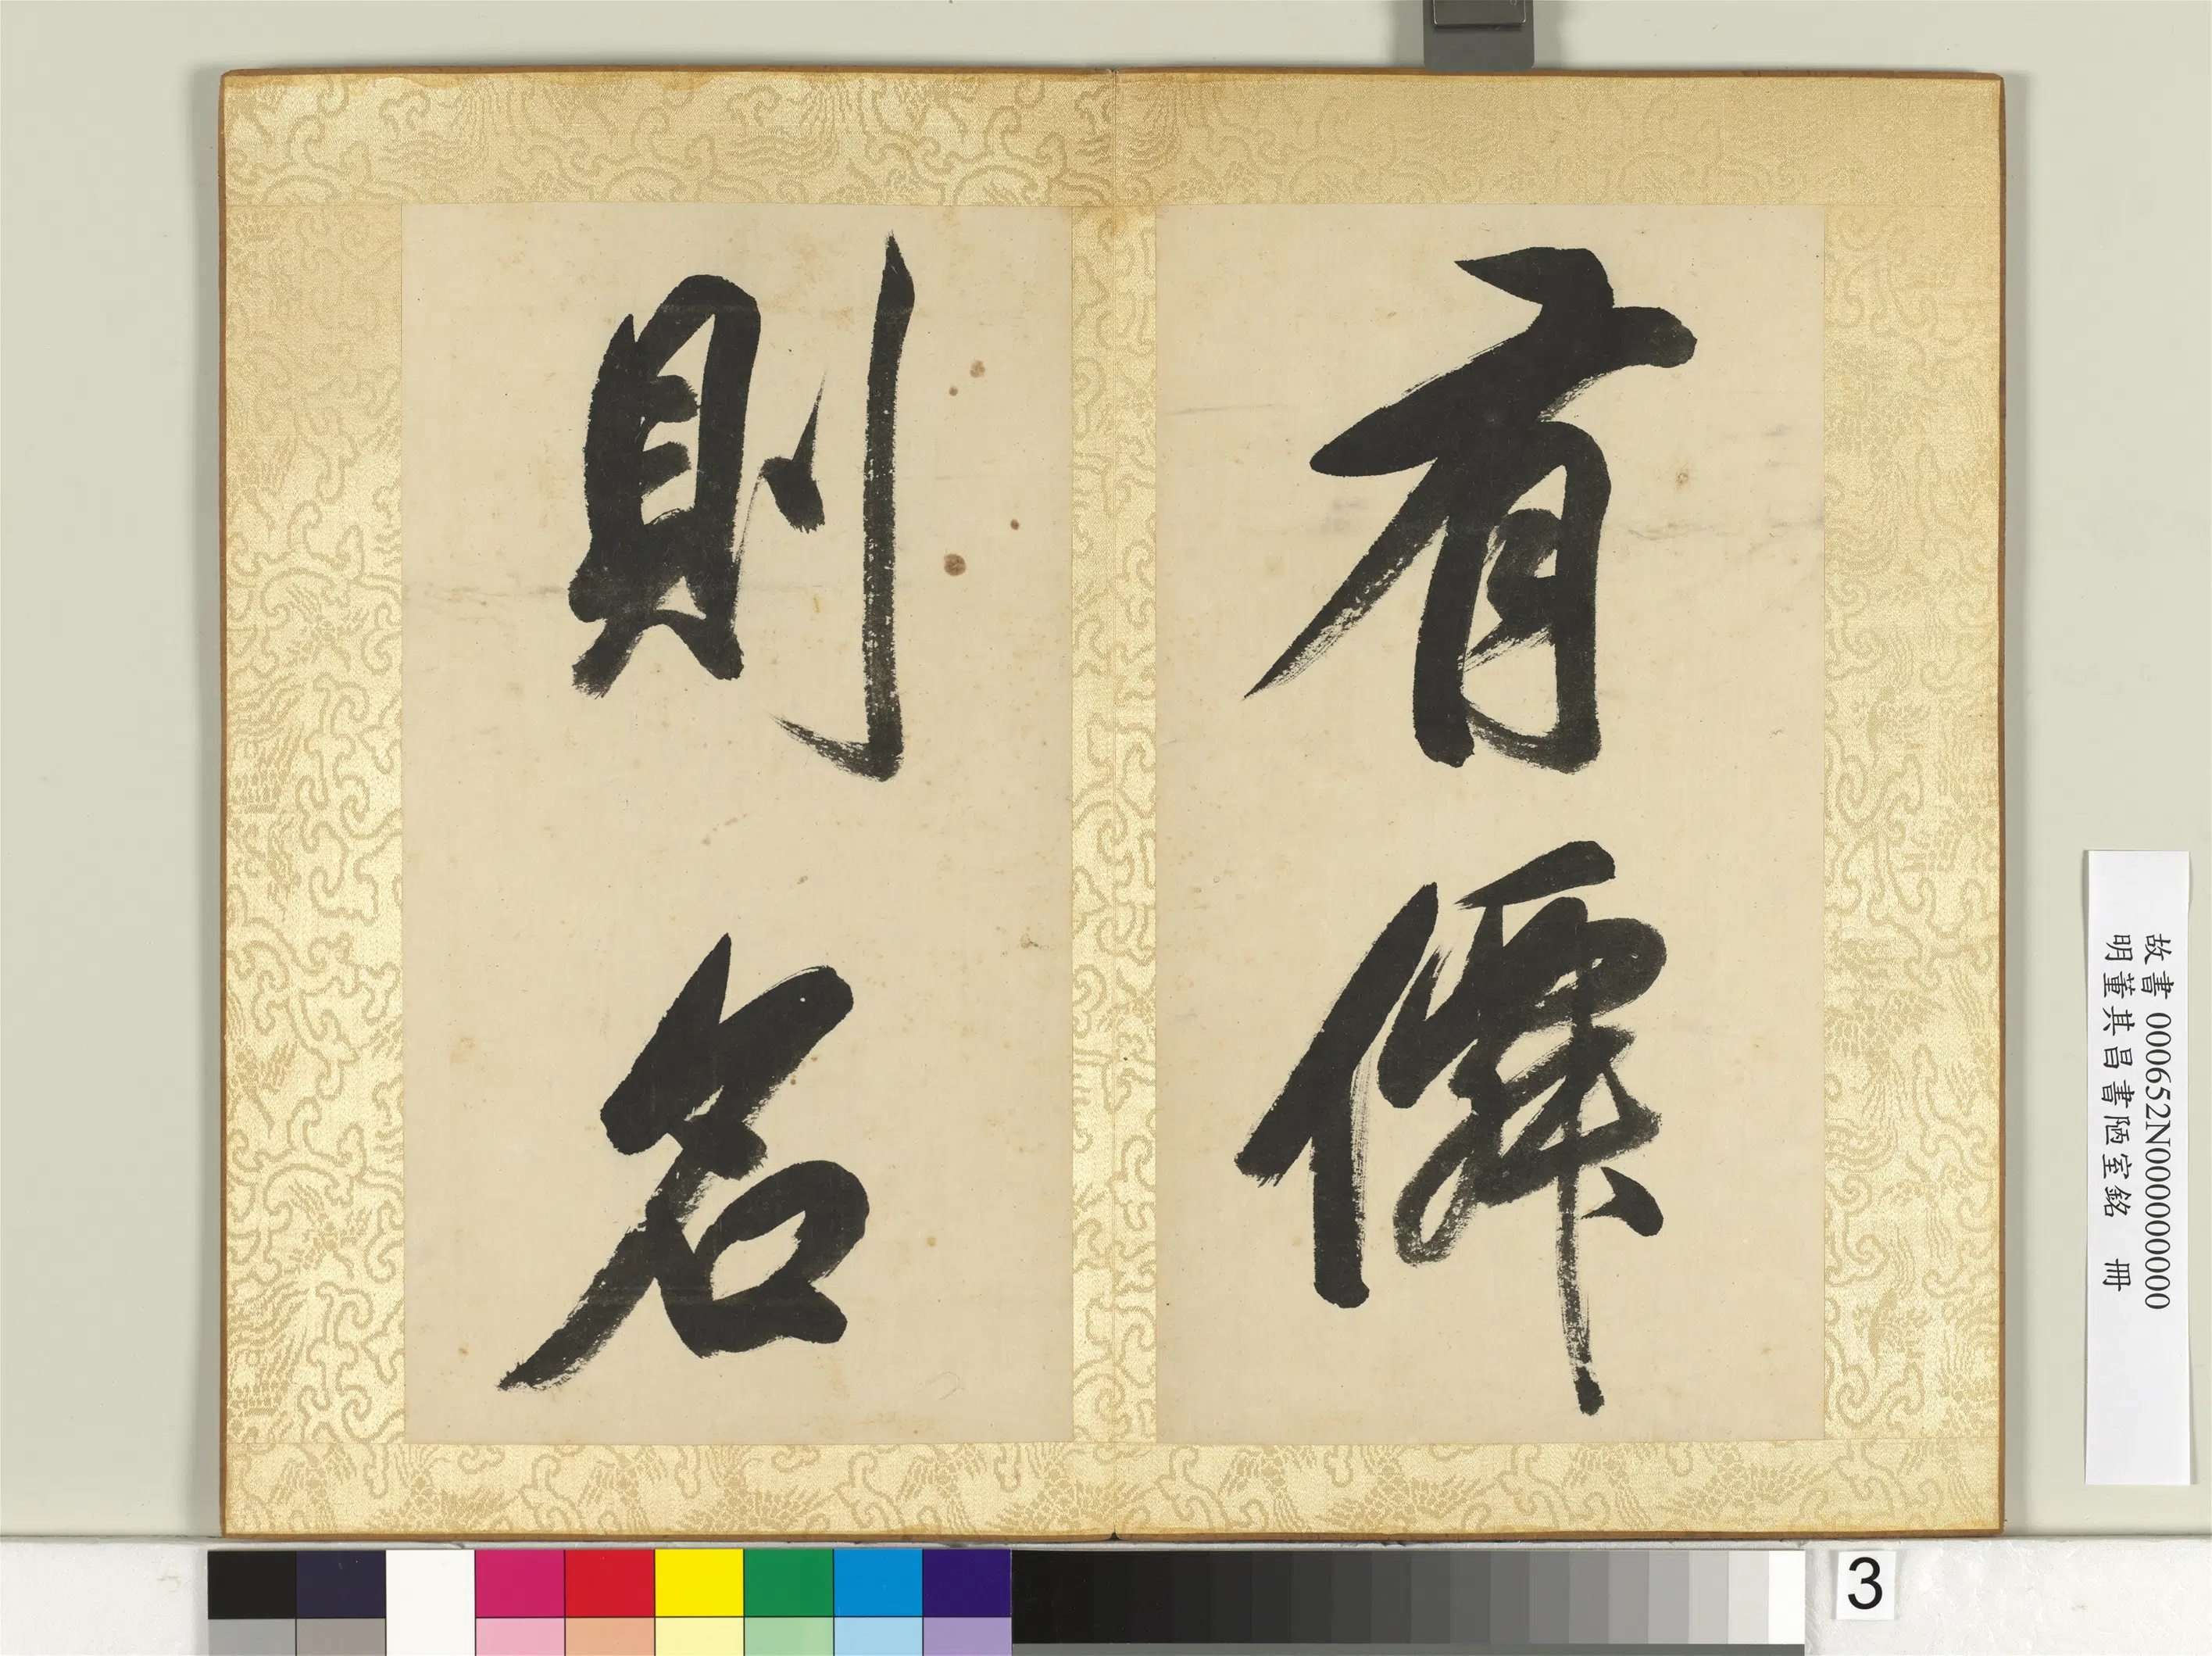 有僊
則名
故書 000652N000000000
明董其昌書陋室銘 冊
3